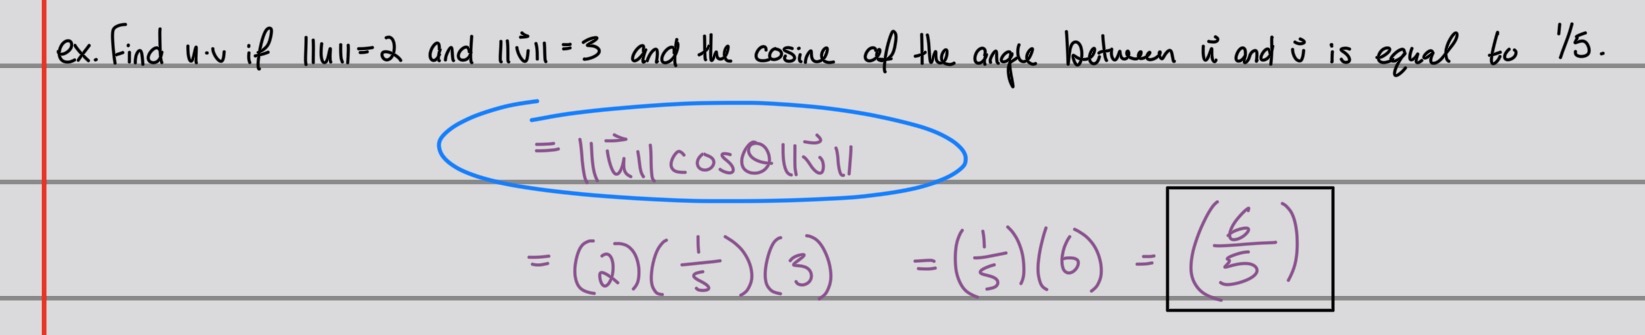 ex. Find u·v if ||u||=2 and ||v⃗|| = 3 and the cosine of the angle between u⃗ and v⃗ is equal to 1/5.
= ||u⃗|| cosθ ||v⃗||
= (2)(1/5)(3) = (1/5)(6) = (6/5)